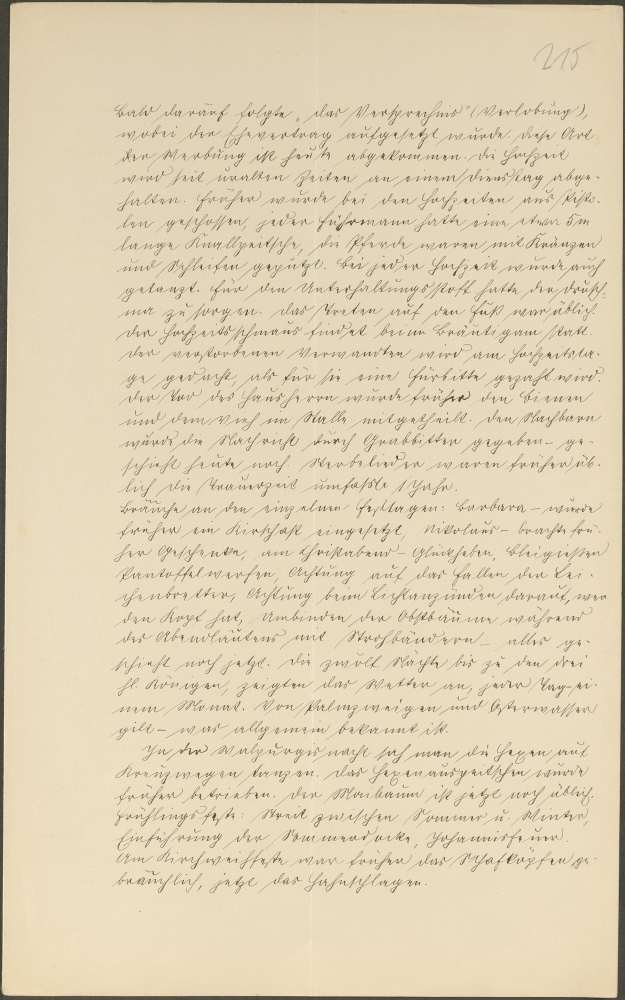 215
bald darauf folgte „das Versprechnis" (Verlobung),
wobei der Ehevertrag aufgesetzt wurde. Diese Art
der Werbung ist heute abgekommen. Die Hochzeit
wird seit uralten Zeiten an einem Dienstag abge-
halten. Früher wurde bei den Hochzeiten aus Pisto-
len geschossen, jeder Fuhrmann hatte eine etwa 5 m
lange Knallpeitsche, die Pferde waren mit Kränzen
und Schleifen geputzt. Bei jeder Hochzeit wurde auch
getanzt. Für den Unterhaltungsstoff hatte der Drusch-
ma zu sorgen. Das Treten auf den Fuß war üblich.
Der Hochzeitsschmaus findet beim Bräutigam statt.
Der verstorbenen Verwandten wird am Hochzeitsta-
ge gedacht, als für sie eine Fürbitte gezahlt wird.
Der Tod des Hausherrn wurde früher den Bienen
und dem Vieh im Stalle mitgetheilt. Den Nachbarn
wurde die Nachricht durch Grabbitter gegeben – ge-
schieht heute noch. Sterbelieder waren früher üb-
lich. Die Trauerzeit umfasste 1 Jahr.
Bräuche an den einzelnen Festtagen: Barbara – wurde
früher ein Kirschast eingesetzt, Nikolaus – brachte frü-
her Geschenke, am Christabend – Glückheben, Bleigiessen
Pantoffelwerfen, Achtung auf das Fallen der Lei-
chenbretter, Achtung beim Lichtanzünden darauf, wer
den Kopf hat, Umbinden der Obstbäume während
des Abendläutens mit Strohbändern – alles ge-
schieht noch jetzt. Die zwölf Nächte bis zu den drei
hl. Königen, zeigten das Wetter an, jeder Tag ei-
nem Monat. Von Palmzweigen und Osterwasser
gilt – was allgemein bekannt ist.
In der Walpurgisnacht sah man die Hexen auf
Kreuzwegen tanzen. Das Hexenauspeitschen wurde
früher betrieben. Der Maibaum ist jetzt noch üblich.
Frühlingsfeste: Streit zwischen Sommer u. Winter,
Einführung der Sommerdocke, Johannisfeuer.
Am Kirchweihfeste war früher das Schafköpfen ge-
bräuchlich, jetzt das Hahnschlagen.